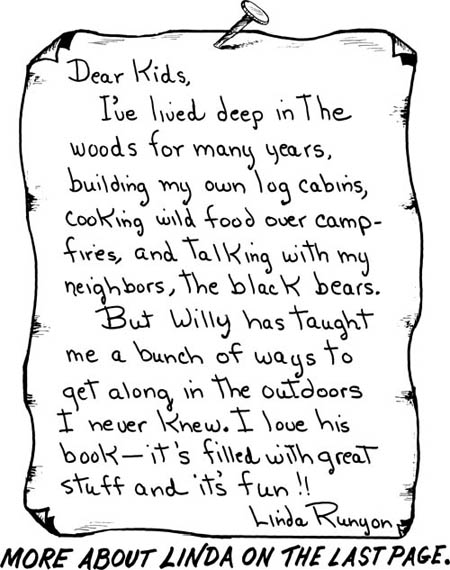 Dear Kids,
I've lived deep in The
woods for many years,
building my own log cabins,
cooking wild food over camp-
fires, and Talking with my
neighbors, The black bears.
But Willy has taught
me a bunch of ways to
get along in the outdoors
I never knew. I love his
book—it's filled with great
stuff and it's fun!!
Linda Runyon
MORE ABOUT LINDA ON THE LAST PAGE.